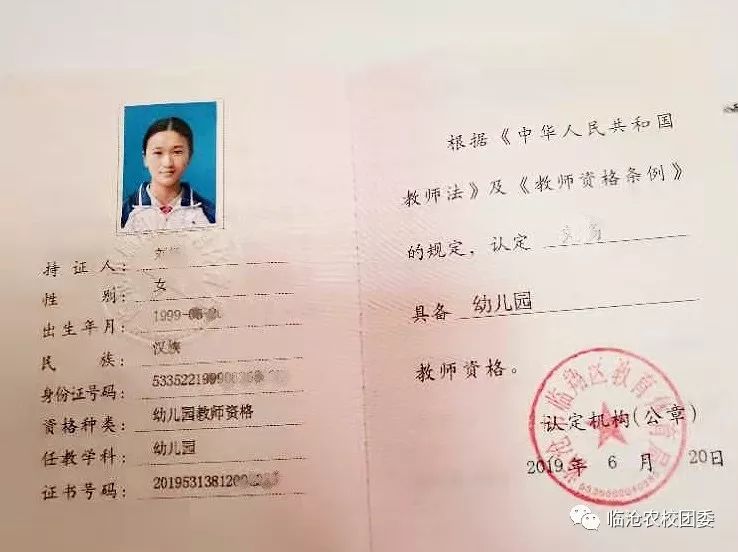 持 证 人：
性 别： 女
出生年月： 1999-
民 族： 汉族
身份证号码： 5335221999
资格种类： 幼儿园教师资格
任教学科： 幼儿园
证书号码： 20195313812
根据《中华人民共和国
教师法》及《教师资格条例》
的规定，认定
具备 幼儿园
教师资格。
临沧市临翔区教育体育局
认定机构(公章)
2019 年 6 月 20日
临沧农校团委